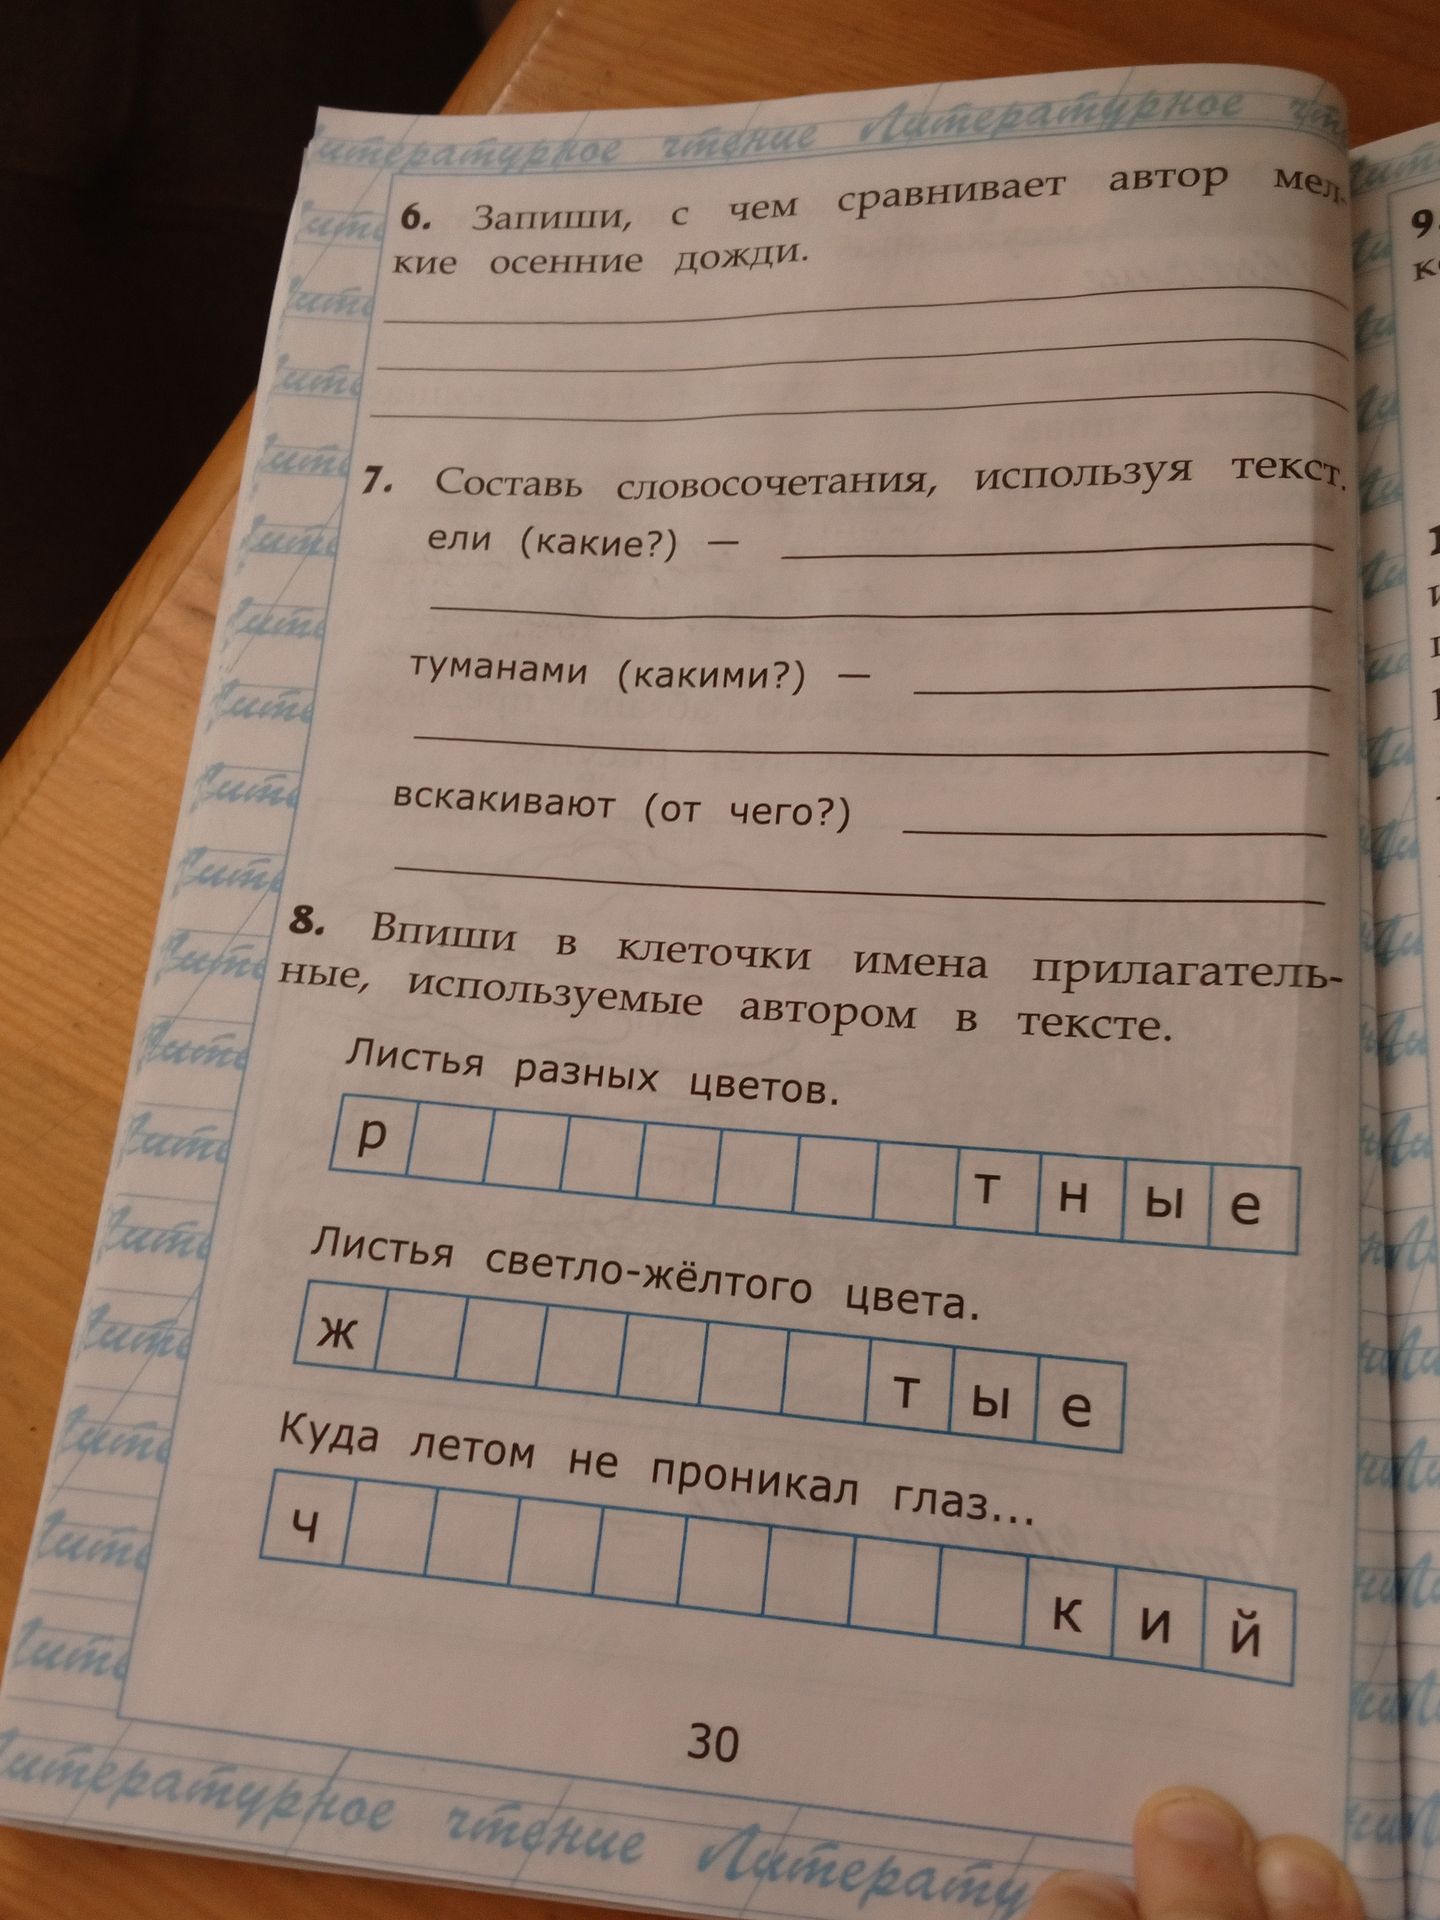 Литературное чтение Литературное
6. Запиши, с чем сравнивает автор мел-
кие осенние дожди.
7. Составь словосочетания, используя текст.
ели (какие?) —
туманами (какими?) —
вскакивают (от чего?)
8. Впиши в клеточки имена прилагатель-
ные, используемые автором в тексте.
Листья разных цветов.
р т н ы е
Листья светло-жёлтого цвета.
ж т ы е
Куда летом не проникал глаз...
ч к и й
30
Литературное чтение
9.